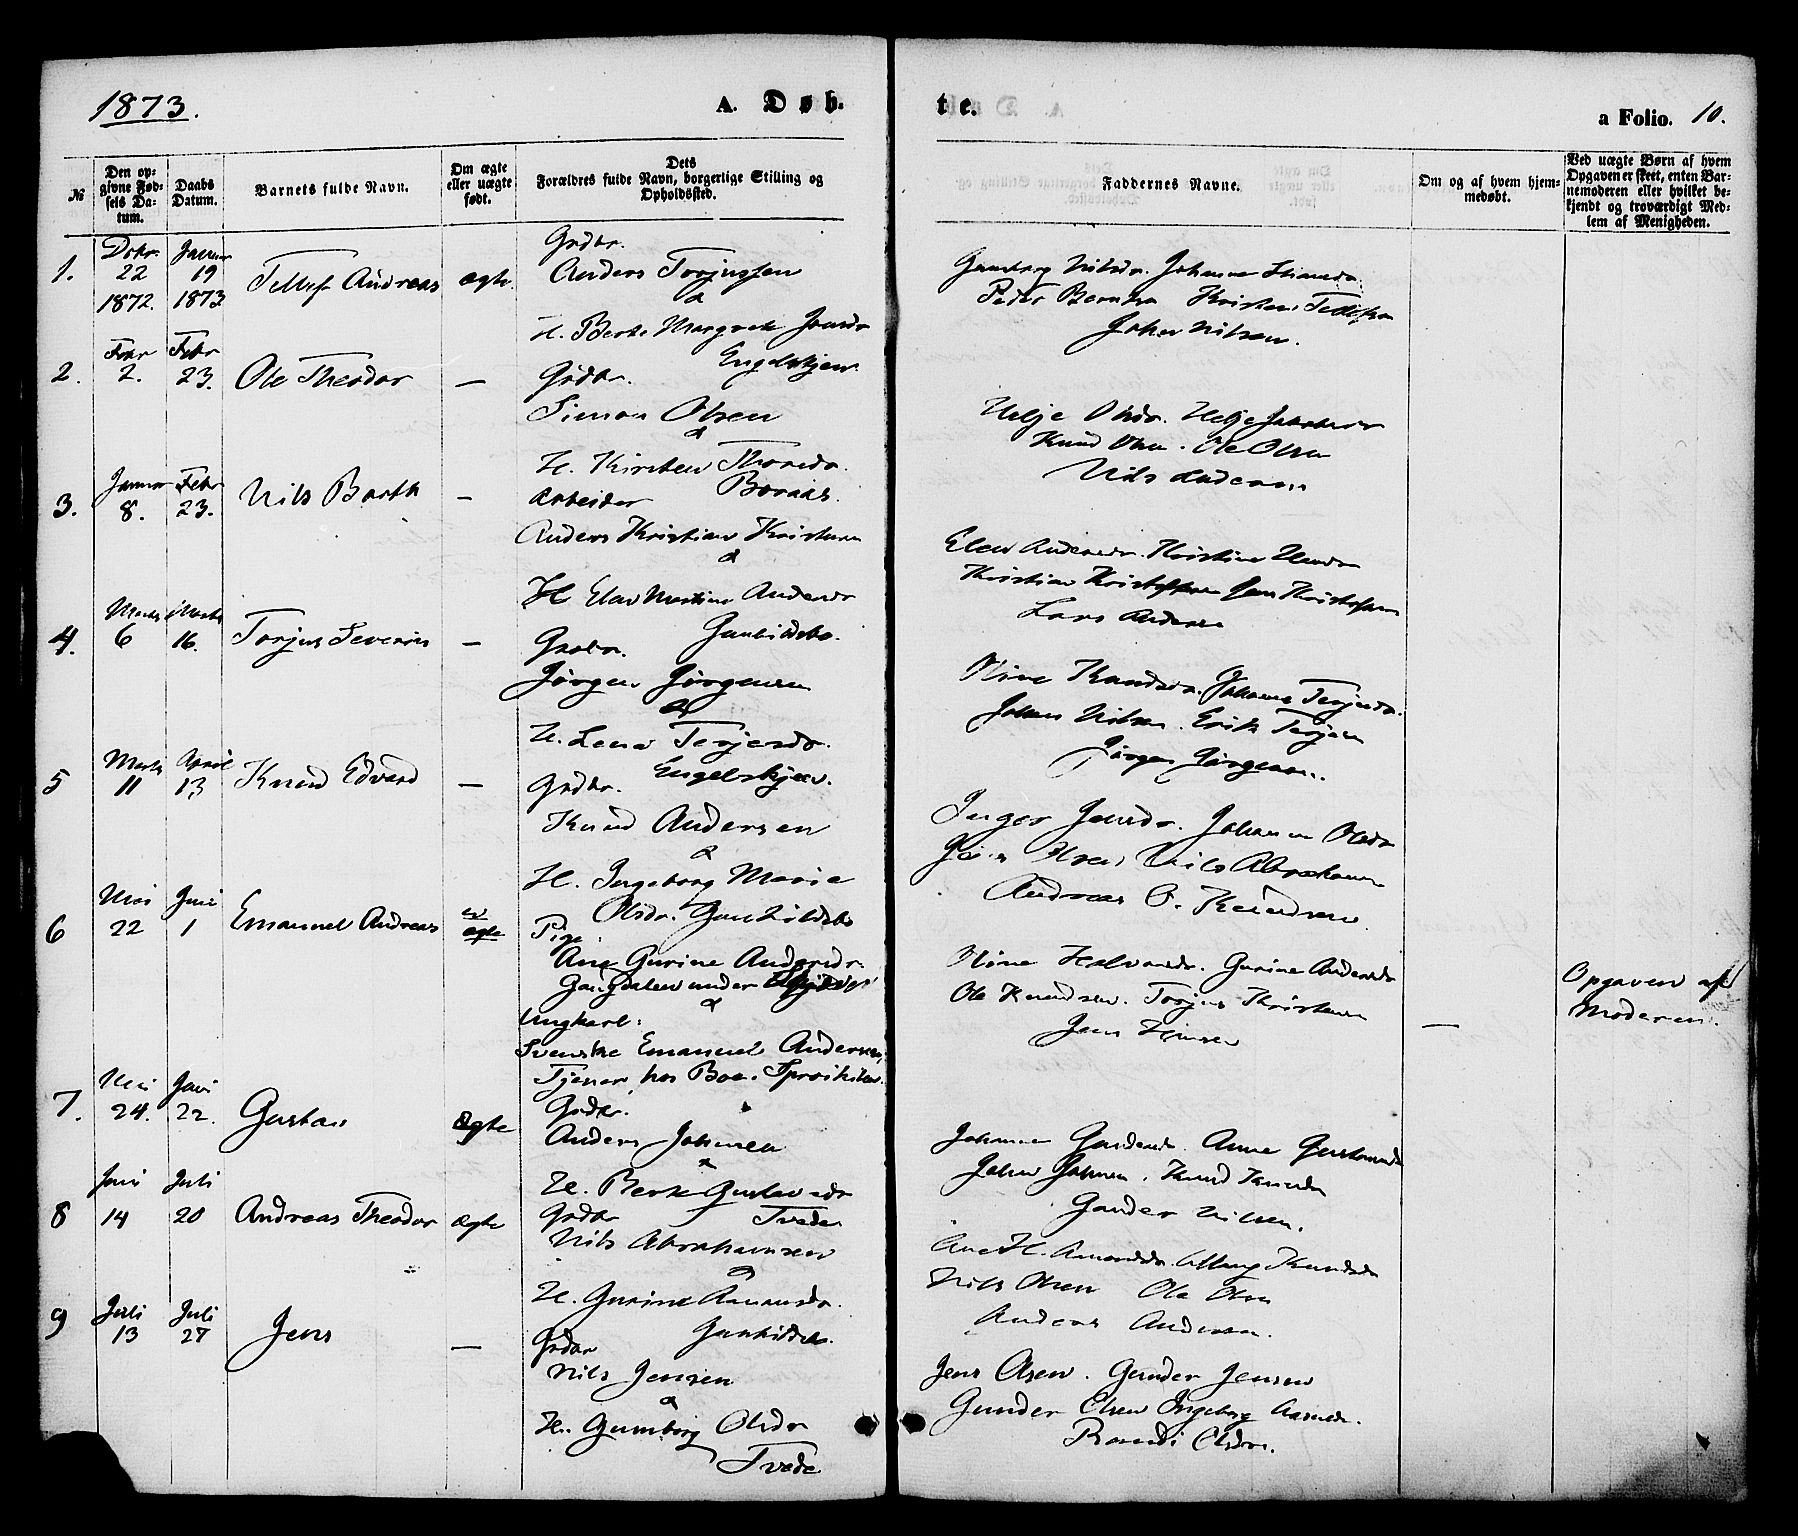 1873.
A. Døb-
№
Den opgivne Fødsels Datum.
Daabs Datum.
Barnets fulde Navn.
Om ægte eller uægte født.
Dets Forældres fulde Navn, borgerlige Stilling og Opholdssted.
1.
Dcbr. 22 1872.
Januar 19 1873
Tellef Andreas
ægte.
Grdbr.
Anders Torjussen
&
H. Berte Margrete Jensdr
Engelskjen.
2.
Febr 2.
Febr 23.
Ole Theodor
—
Grdbr.
Simon Olsen
&
H. Kirsten Thorsdr.
Boraas.
3.
Januar 8.
Febr 23.
Nils Barth
—
Arbeider
Anders Kristian Kristensen
&
H Elen Martine Andersdr
Gunhildsbo.
4.
Marts 6
Marts 16.
Torjus Severin
—
Grdbr.
Jørgen Jørgensen
&
H. Lena Terjesdr.
Engelskjen.
5
Marts 11
April 13
Knud Edvard
—
Grdbr.
Knud Andersen
&
H. Ingeborg Marie
Olsdr. Gunhildsbo
6
Mai 22
Juni 1
Emanuel Andreas
u ægte
Pige
Ane Gurine Andersdr.
under
&
Ungkarl:
Svenske Emanuel Andersen,
Tjener hos Boe.
7.
Mai 24.
Juni 22.
Gustav
Ægte
Grdbr.
Anders Johnsen
&
H. Berte Gustavsdr
Tvede
8
Juni 14
Juli 20
Andreas Theodor
ægte
Grdbr
Nils Abrahamsen
&
H. Gurine Amunsdr.
Gunhildsbo.
9
Juli 13
Juli 27
Jens
—
Grdbr
Nils Jensen
&
H. Gunborg Olsdr
Tvede
te.
a Folio. 10.
Faddernes Navne.
Om og af hvem hjemmedøbt.
Ved uægte Børn af hvem Opgaven er skeet, enten Barnemoderen eller hvilket bekjendt og troværdigt Medlem af Menigheden.
Gunborg Nilsdr. Johanne
Peder Berntsen Kristen Tellefsen
Johan Nilsen.
Helje Olsdr. Helje Jakobsdr
Knud Olsen. Ole Olsen
Nils Andersen
Elen Andersdr. Kristine
Kristian Kristoffersen Jens Kristoffersen
Lars Andersen
Oline Knudsdr. Johanne Terjesdr.
Johan Nilsen. Erik Terjesen
Jørgen Jørgensen.
Inger Jensdr. Johanne Olsdr
Jens Olsen, Nils Abrahamsen
Andreas O. Knudsen
Oline Halvorsdr. Gurine Andersdr
Ole Knudsen. Torjus Kristensen
Jens
—
Opgaven af
Moderen.
Johanne Anne Gustavsdr
John Johnsen. Knud Knudsen
Gunder Nilsen.
Ane H. Amundsdr. Knudsdr
Nils Olsen Ole Olsen
Anders Andersen.
Jens Olsen. Gunder Jensen
Gunder Olsen Ingeborg
Randi Olsdr.